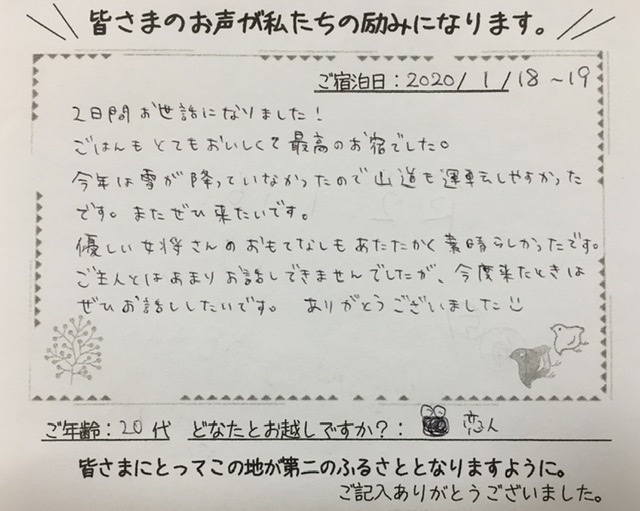 皆さまのお声が私たちの励みになります。
ご宿泊日：2020/1/18～19
2日間お世話になりました！
ごはんもとてもおいしくて最高のお宿でした。
今年は雪が降っていなかったので山道も運転しやすかった
です。またぜひ来たいです。
優しい女将さんのおもてなしもあたたかく素晴らしかったです。
ご主人とはあまりお話しできませんでしたが、今度来たときは
ぜひお話ししたいです。 ありがとうございました
ご年齢：20代 どなたとお越しですか？： 恋人
皆さまにとってこの地が第二のふるさととなりますように。
ご記入ありがとうございました。